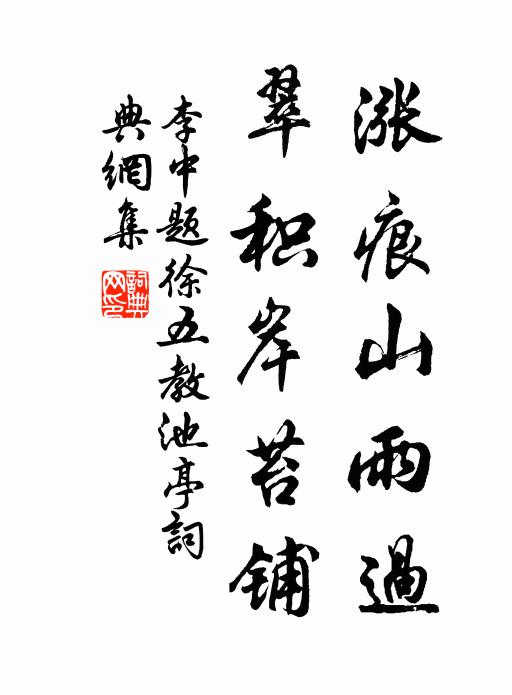 漲痕山雨過
翠积岸苔铺
李中題徐五教池亭詞
典網集
詞典網印